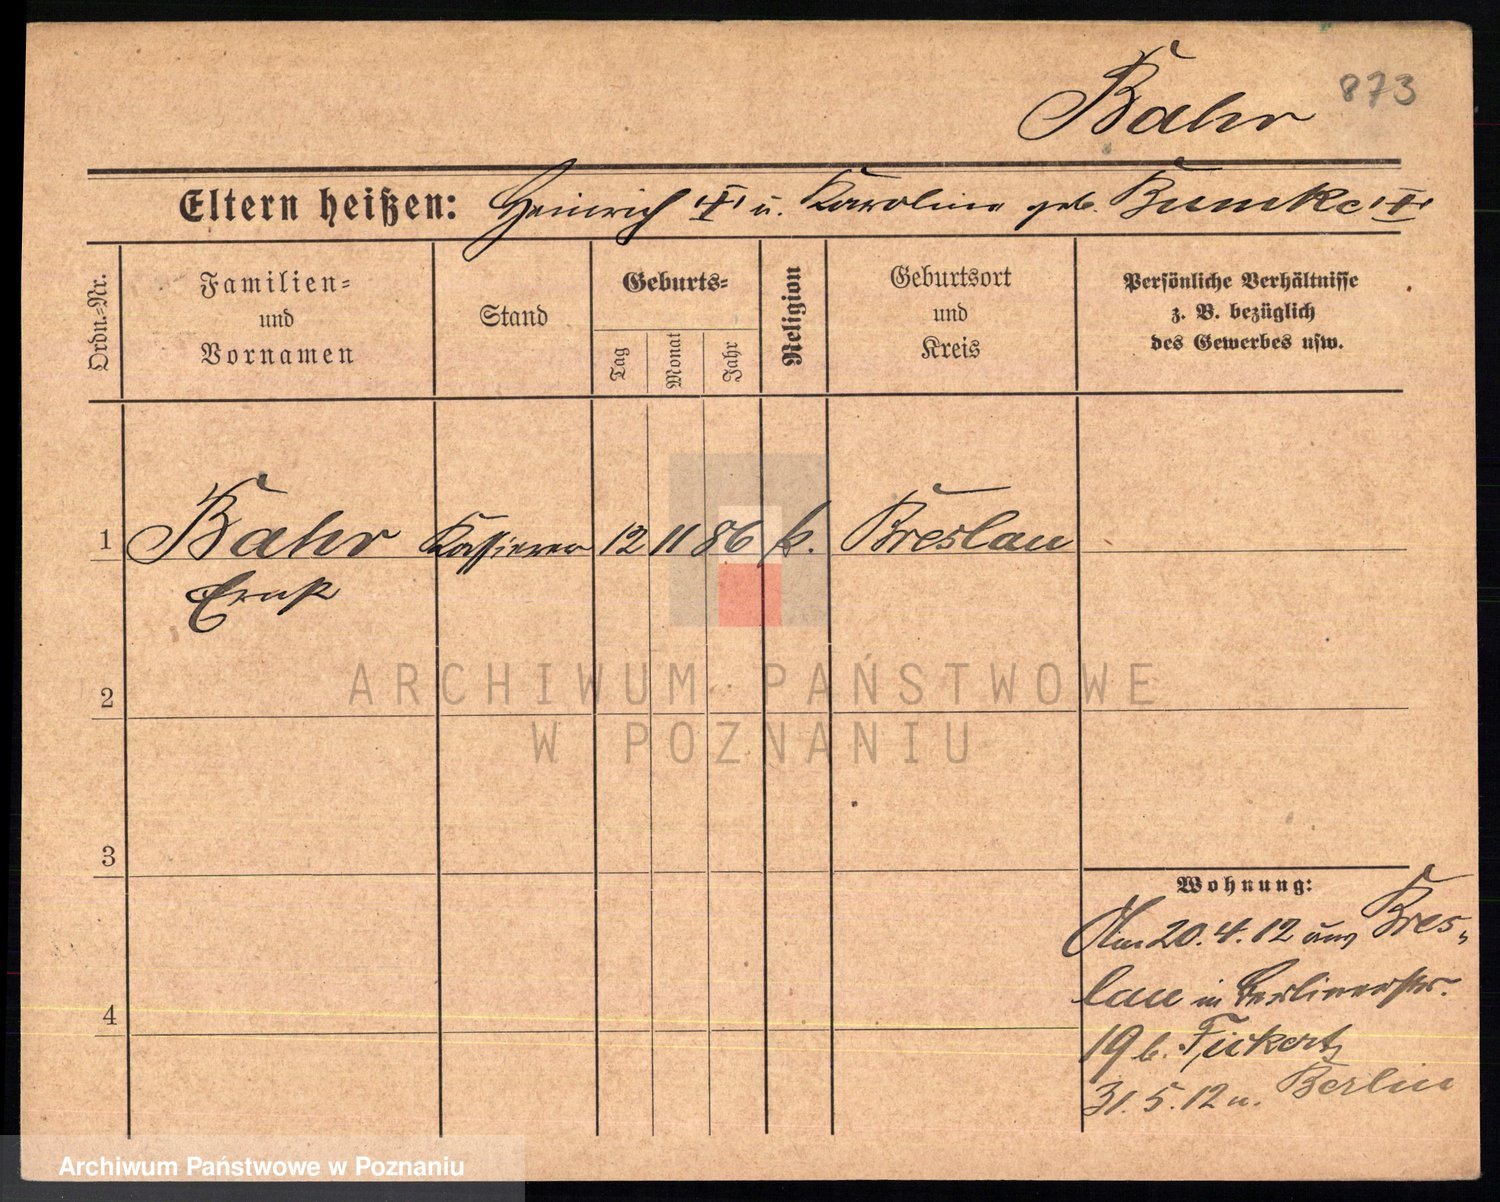 Bahr 873
Eltern heißen: Heinrich "†" u. Karoline geb. Bumke "†"
Ordn.-Nr.
Familien-
und
Vornamen
Stand
Geburts-
Tag
Monat
Jahr
Religion
Geburtsort
und
Kreis
Persönliche Verhältnisse
z. B. bezüglich
des Gewerbes usw.
1 Bahr Kassierer 12 11 86 k. Breslau
Ernst
2
3
4
Wohnung:
Am 20.4.12 aus Bres-
lau in Berlinerstr.
19 b. Fickert,
31.5.12 n. Berlin
ARCHIWUM PAŃSTWOWE
W POZNANIU
Archiwum Państwowe w Poznaniu